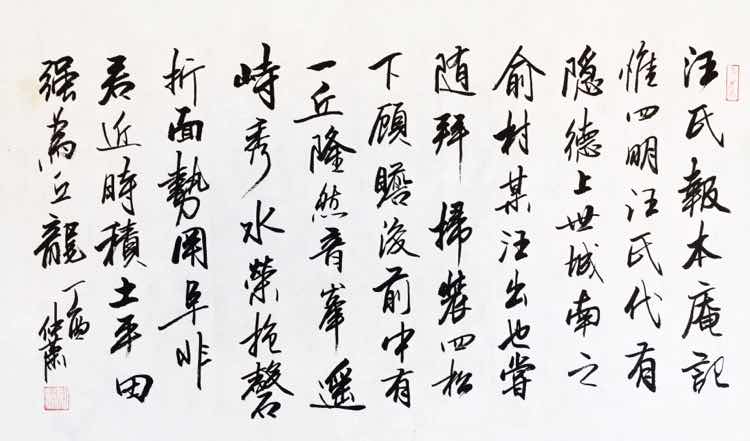 汪氏報本庵記
惟四明汪氏代有
隐德上世城南之
俞村某汪出也嘗
随拜掃裝四松
下顧瞻後前中有
一丘隆然音峯遥
峙秀水榮抱磬
折面勢岡阜非
若近時積土平田
强為丘龍
丁酉